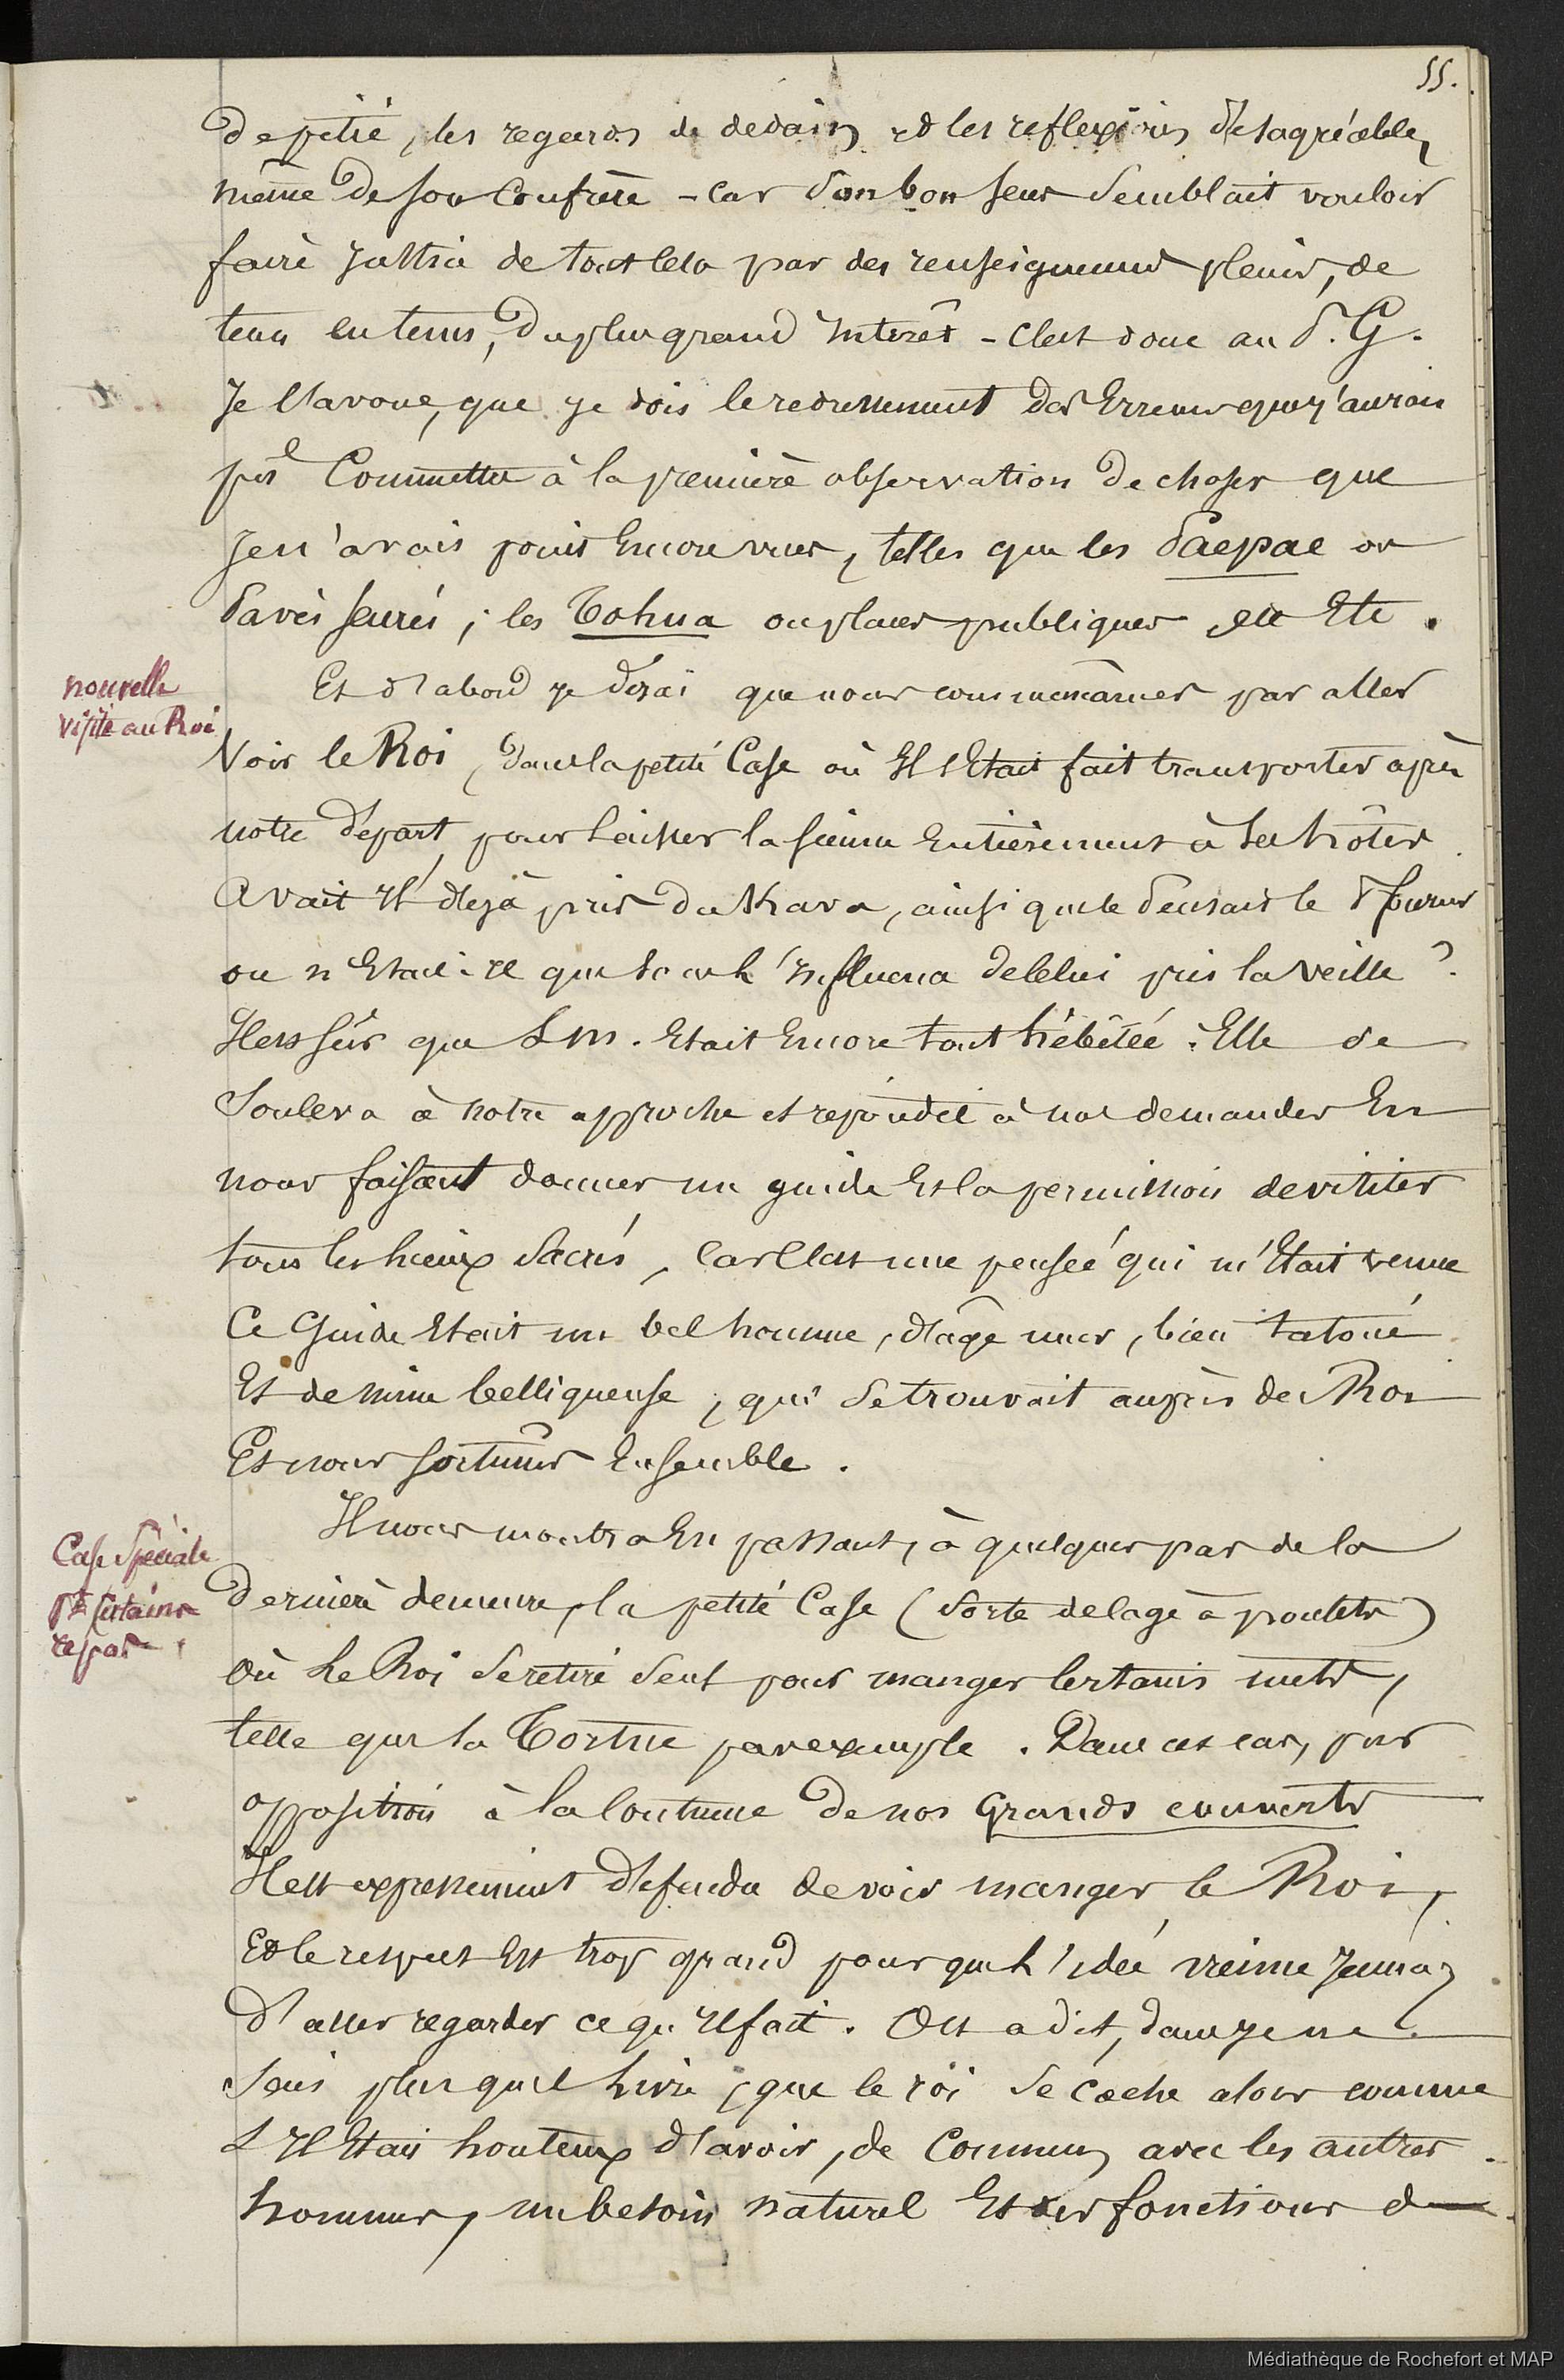 55.
de pitié, les regards de dedain et les reflexions désagréables
même de son Confrère – car son bon sens semblait vouloir
faire justice de tout cela par des renseignemens pleins, de
tems en tems, du plus grand intérêt – C'est donc au P. G.
je l'avoue, que je dois le redressement des Erreurs que j'aurais
pû Commettre à la première observation de choses que
je n'avais point Encore vues, telles que les Paepae ou
Pavés sacrés ; les Tohua ou places publiques etc Etc .
nouvelle
visite au Roi
Et d'abord je dirai que nous commençâmes par aller
Voir le Roi, dans la petite Case où Il s'Etait fait transporter après
notre départ, pour laisser la sienne Entièrement à ses hôtes.
Avait-il déjà pris du Kava, ainsi que le pensait le P.
ou n'Etait-ce que sous l'influence de celui pris la veille ?
Il est sûr que S M. Etait Encore tout hébêtée. Elle se
souleva à notre approche et répondit à nos demandes En
nous faisant donner un guide Et la permission de visiter
tous les lieux sacrés, car c'est une pensée qui m'Etait venue
Ce Guide Etait un bel homme, d'âge mur, bien tatoué
Et de mine belliqueuse, qui se trouvait auprès du Roi
Et nous sortimes Ensemble .
Case Spéciale
pr certains
repas .
Il nous montra En passant, à quelques pas de la
dernière demeure, la petite Case (sorte de cage à poulets)
où Le Roi se retire seul pour manger certains mets,
telle que la Tortue par exemple . Dans ces cas, par
opposition à la coutume de nos Grands couverts
Il est expressement défendu de voir manger le Roi,
Et le respect Est trop grand pour que l'idée vienne jamais
d'aller regarder ce qu'Il fait . On a dit, dans je ne
sais plus quel livre, que le roi se cache alors comme
s'Il Etait honteux d'avoir, de Commun avec les autres
hommes, un besoin naturel Et des fonctions d
Médiathèque de Rochefort et MAP